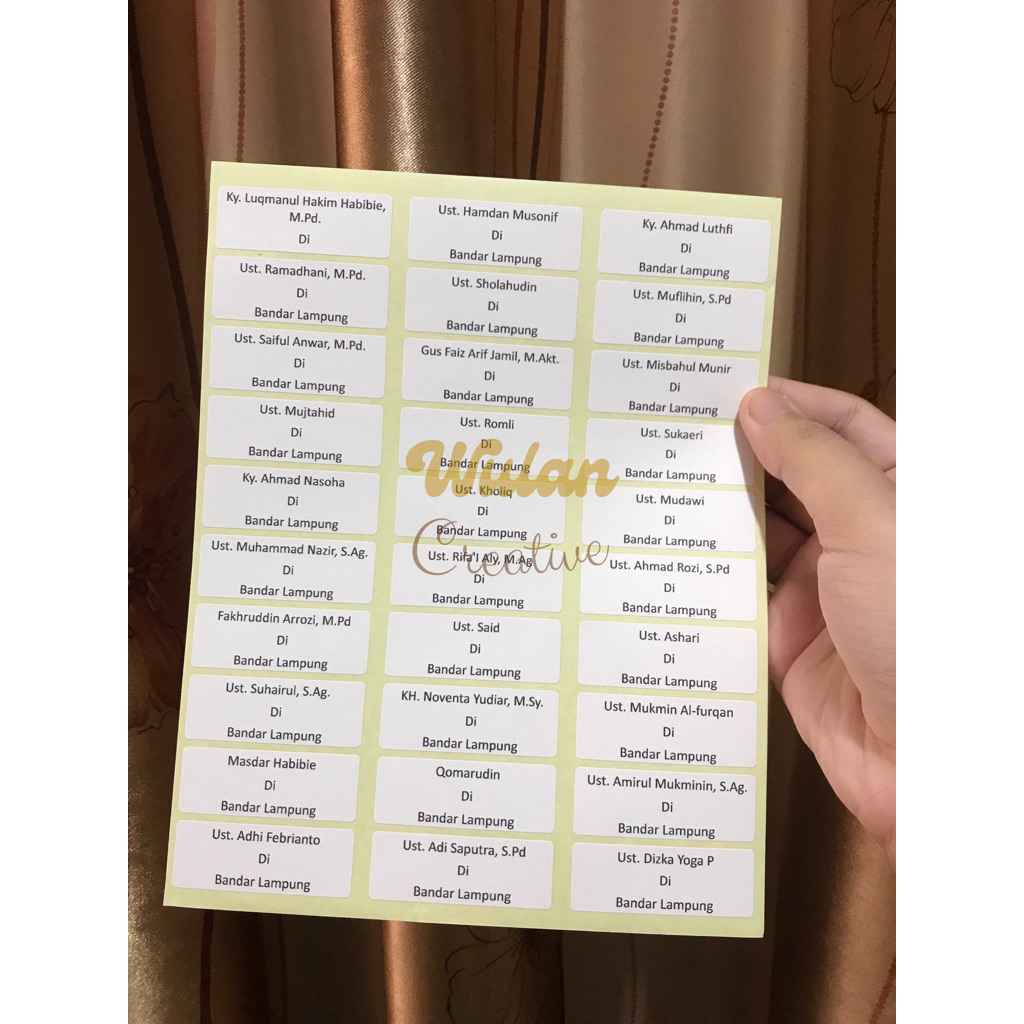 Ky. Luqmanul Hakim Habibie,
M.Pd.
Di
Ust. Hamdan Musonif
Di
Bandar Lampung
Ky. Ahmad Luthfi
Di
Bandar Lampung
Ust. Ramadhani, M.Pd.
Di
Bandar Lampung
Ust. Sholahudin
Di
Bandar Lampung
Ust. Muflihin, S.Pd
Di
Bandar Lampung
Ust. Saiful Anwar, M.Pd.
Di
Bandar Lampung
Gus Faiz Arif Jamil, M.Akt.
Di
Bandar Lampung
Ust. Misbahul Munir
Di
Bandar Lampung
Ust. Mujtahid
Di
Bandar Lampung
Ust. Romli
Di
Bandar Lampung
Ust. Sukaeri
Di
Bandar Lampung
Ky. Ahmad Nasoha
Di
Bandar Lampung
Ust. Kholiq
Di
Bandar Lampung
Ust. Mudawi
Di
Bandar Lampung
Ust. Muhammad Nazir, S.Ag.
Di
Bandar Lampung
Ust. Rifa'I Aly, M.Ag
Di
Bandar Lampung
Ust. Ahmad Rozi, S.Pd
Di
Bandar Lampung
Fakhruddin Arrozi, M.Pd
Di
Bandar Lampung
Ust. Said
Di
Bandar Lampung
Ust. Ashari
Di
Bandar Lampung
Ust. Suhairul, S.Ag.
Di
Bandar Lampung
KH. Noventa Yudiar, M.Sy.
Di
Bandar Lampung
Ust. Mukmin Al-furqan
Di
Bandar Lampung
Masdar Habibie
Di
Bandar Lampung
Qomarudin
Di
Bandar Lampung
Ust. Amirul Mukminin, S.Ag.
Di
Bandar Lampung
Ust. Adhi Febrianto
Di
Bandar Lampung
Ust. Adi Saputra, S.Pd
Di
Bandar Lampung
Ust. Dizka Yoga P
Di
Bandar Lampung
Wulan
Creative